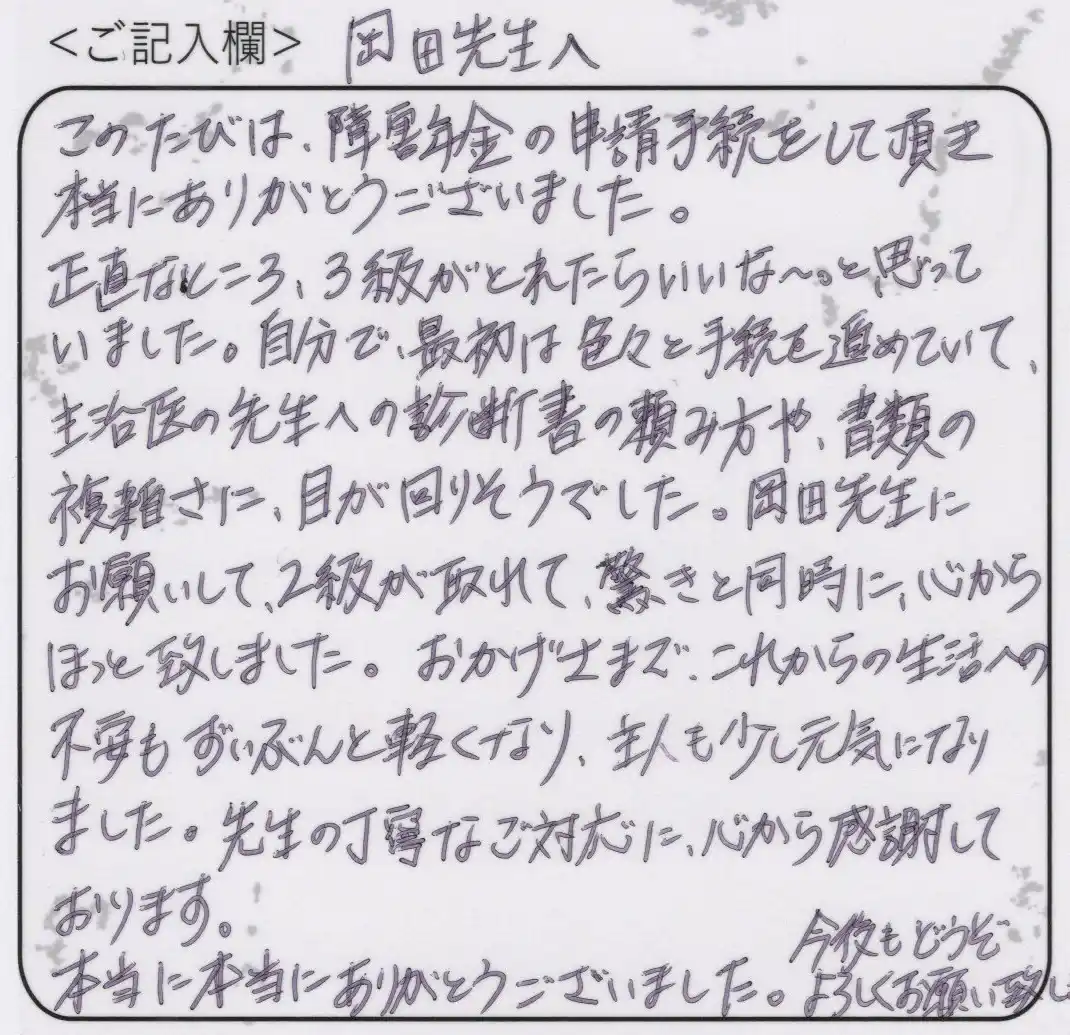 <ご記入欄> 岡田先生へ
このたびは、障害年金の申請手続をして頂き
本当にありがとうございました。
正直なところ、3級がとれたらいいな〜。と思って
いました。自分で、最初は色々と手続を進めていて、
主治医の先生への診断書の頼み方や、書類の
複雑さに、目が回りそうでした。岡田先生に
お願いして、2級が取れて、驚きと同時に、心から
ほっと致しました。おかげさまで、これからの生活への
不安もずいぶんと軽くなり、主人も少し元気になり
ました。先生の丁寧なご対応に、心から感謝して
おります。
本当に本当にありがとうございました。
今後もどうぞ
よろしくお願い致し